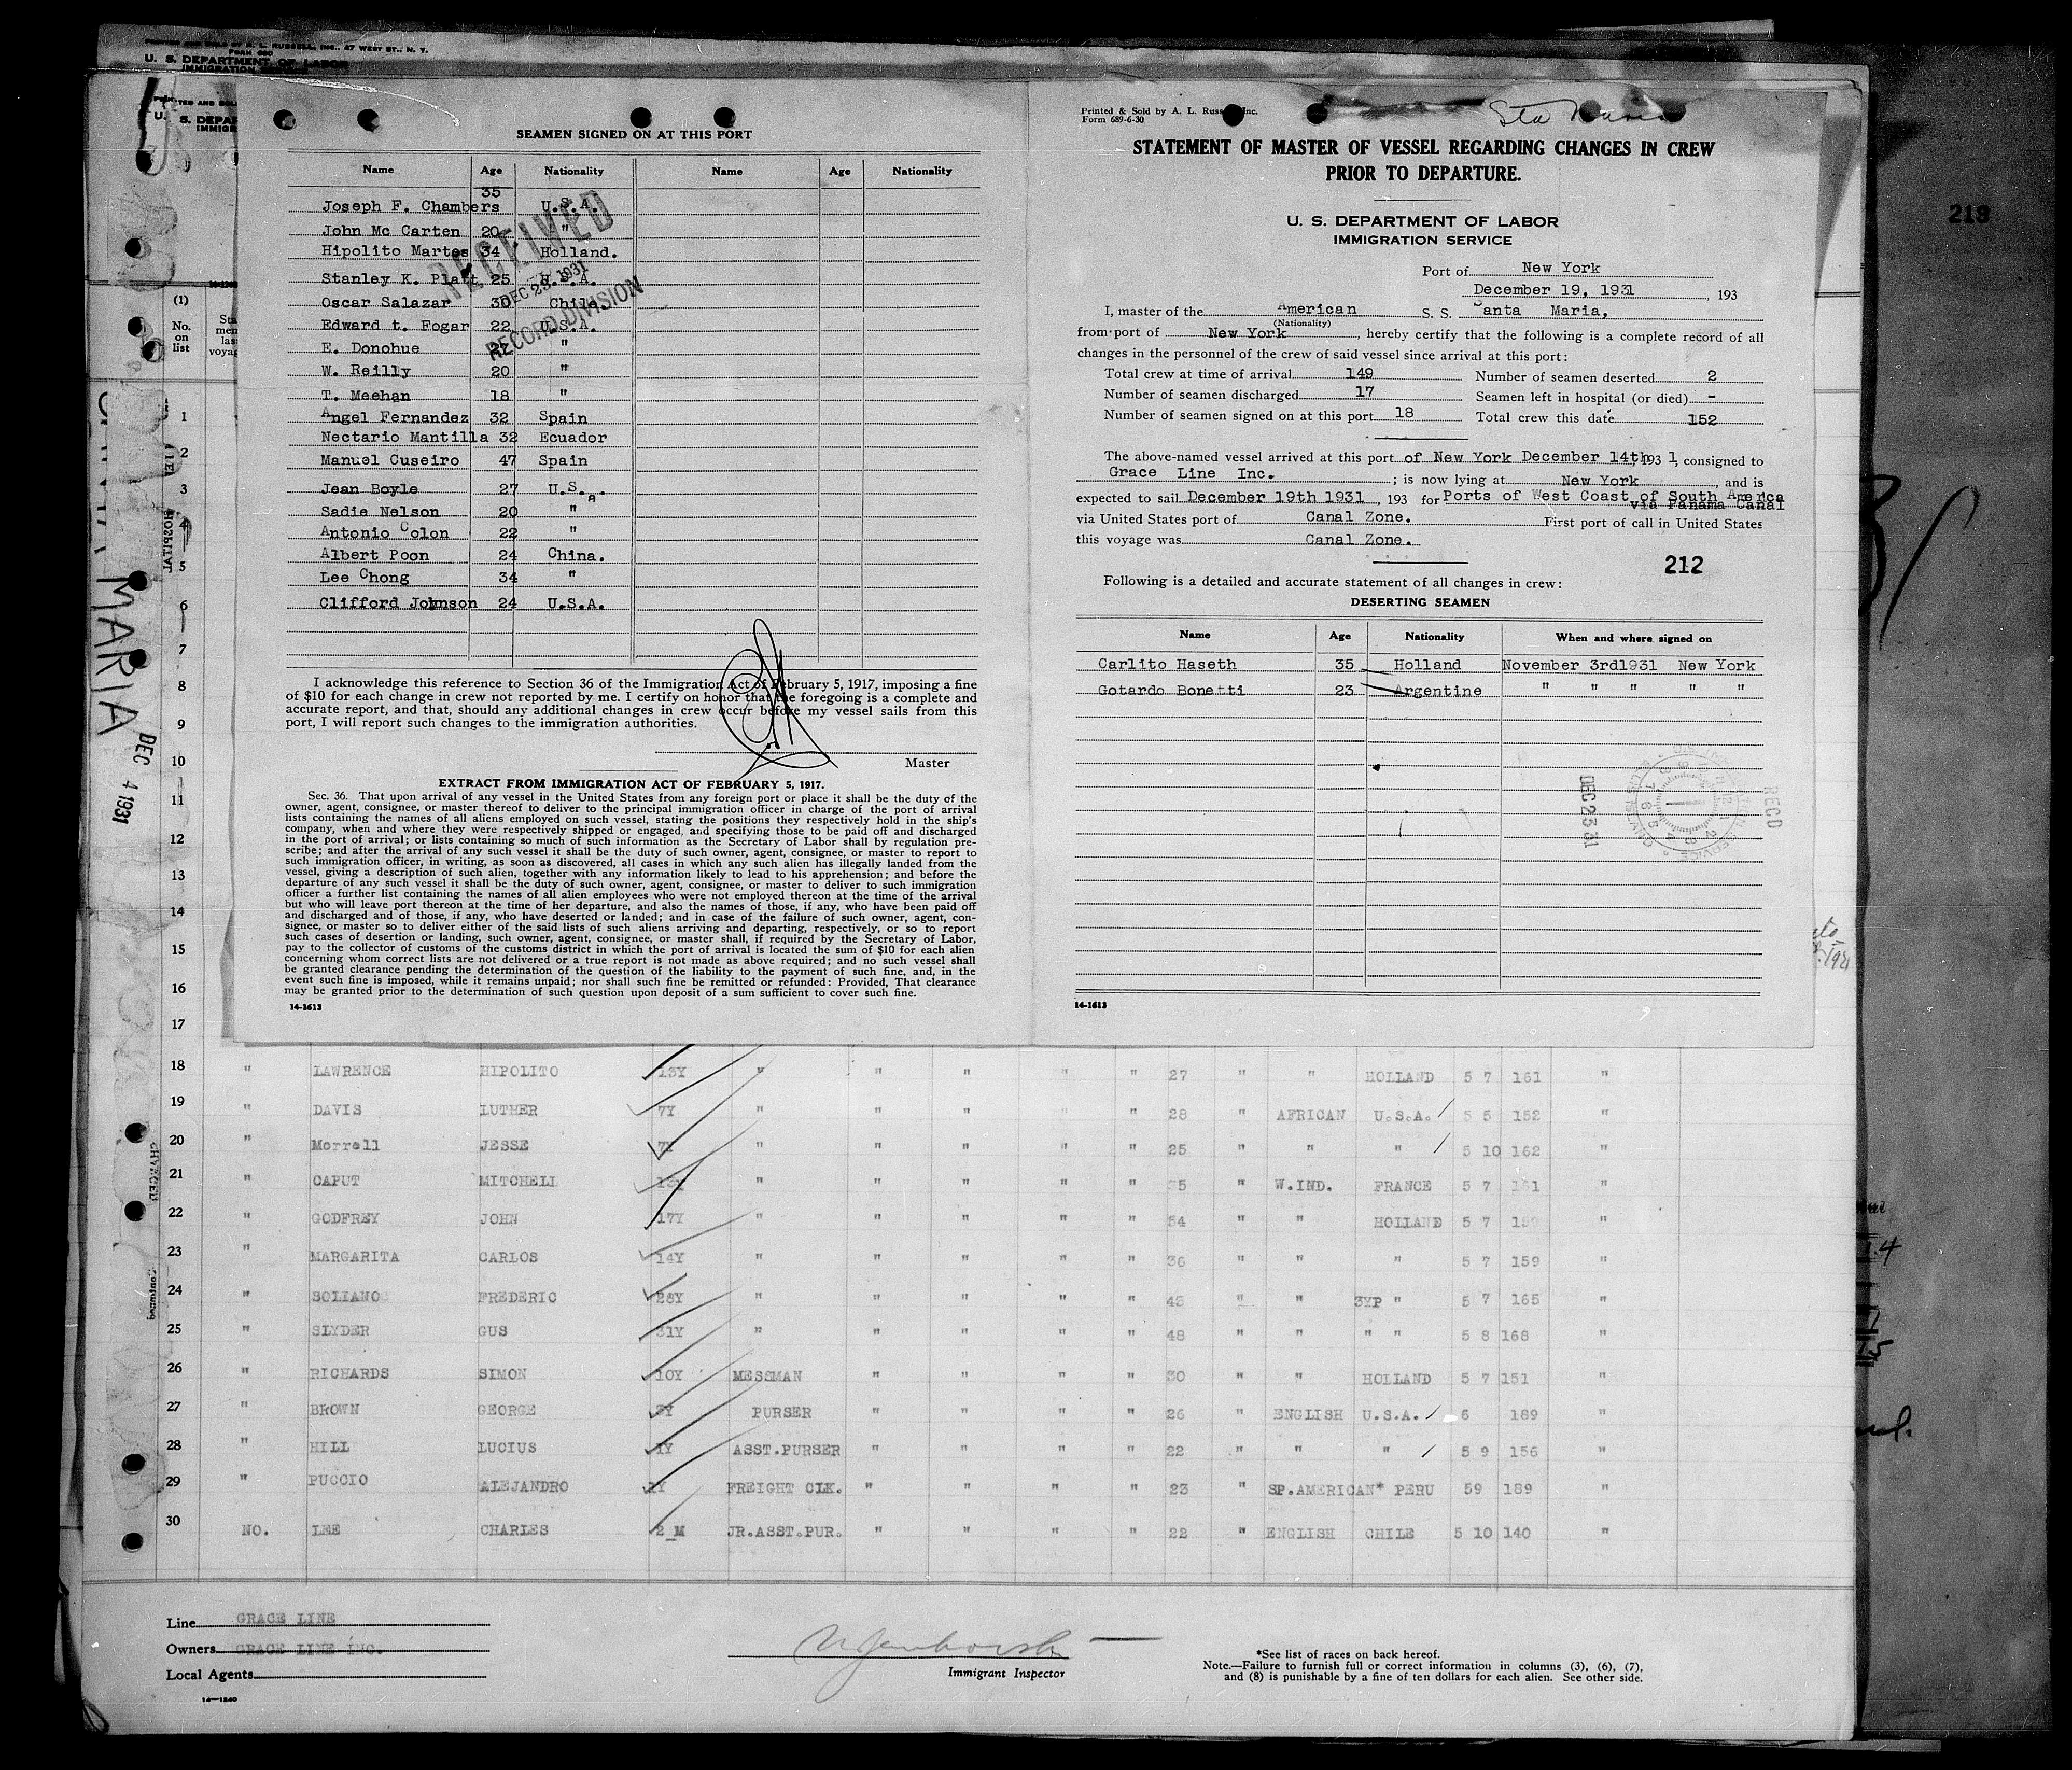 PRINTED AND SOLD BY A. L. RUSSELL, INC., 47 WEST ST., N. Y.
FORM 680
U. S. DEPARTMENT OF LABOR
IMMIGRATION SERVICE
SEAMEN SIGNED ON AT THIS PORT
Name Age Nationality Name Age Nationality
Joseph F. Chambers 35 U.S.A.
John Mc Carten 20 "
Hipolito Martes 34 Holland.
Stanley K. Platt 25 U.S.A.
Oscar Salazar 30 Chile
Edward t. Fogar 22 U.S.A.
E. Donohue "
W. Reilly 20 "
T. Meehan 18 "
Angel Fernandez 32 Spain
Nectario Mantilla 32 Ecuador
Manuel Cuseiro 47 Spain
Jean Boyle 27 U.S.A.
Sadie Nelson 20 "
Antonio Colon 22 "
Albert Poon 24 China.
Lee Chong 34 "
Clifford Johnson 24 U.S.A.
RECEIVED
DEC 23 1931
RECORD DIVISION
I acknowledge this reference to Section 36 of the Immigration Act of February 5, 1917, imposing a fine
of $10 for each change in crew not reported by me. I certify on honor that the foregoing is a complete and
accurate report, and that, should any additional changes in crew occur before my vessel sails from this
port, I will report such changes to the immigration authorities.
Master
EXTRACT FROM IMMIGRATION ACT OF FEBRUARY 5, 1917.
Sec. 36. That upon arrival of any vessel in the United States from any foreign port or place it shall be the duty of the
owner, agent, consignee, or master thereof to deliver to the principal immigration officer in charge of the port of arrival
lists containing the names of all aliens employed on such vessel, stating the positions they respectively hold in the ship's
company, when and where they were respectively shipped or engaged, and specifying those to be paid off and discharged
in the port of arrival; or lists containing so much of such information as the Secretary of Labor shall by regulation pre-
scribe; and after the arrival of any such vessel it shall be the duty of such owner, agent, consignee, or master to report to
such immigration officer, in writing, as soon as discovered, all cases in which any such alien has illegally landed from the
vessel, giving a description of such alien, together with any information likely to lead to his apprehension; and before the
departure of any such vessel it shall be the duty of such owner, agent, consignee, or master to deliver to such immigration
officer a further list containing the names of all alien employees who were not employed thereon at the time of the arrival
but who will leave port thereon at the time of her departure, and also the names of those, if any, who have been paid off
and discharged and of those, if any, who have deserted or landed; and in case of the failure of such owner, agent, con-
signee, or master so to deliver either of the said lists of such aliens arriving and departing, respectively, or so to report
such cases of desertion or landing, such owner, agent, consignee, or master shall, if required by the Secretary of Labor,
pay to the collector of customs of the customs district in which the port of arrival is located the sum of $10 for each alien
concerning whom correct lists are not delivered or a true report is not made as above required; and no such vessel shall
be granted clearance pending the determination of the question of the liability to the payment of such fine, and, in the
event such fine is imposed, while it remains unpaid; nor shall such fine be remitted or refunded: Provided, That clearance
may be granted prior to the determination of such question upon deposit of a sum sufficient to cover such fine.
14-1613
Printed & Sold by A. L. Russell, Inc.
Form 689-6-30
Sta Maria
STATEMENT OF MASTER OF VESSEL REGARDING CHANGES IN CREW
PRIOR TO DEPARTURE.
U. S. DEPARTMENT OF LABOR
IMMIGRATION SERVICE
Port of New York
December 19, 1931, 193
I, master of the American S. S. Santa Maria,
(Nationality)
from port of New York, hereby certify that the following is a complete record of all
changes in the personnel of the crew of said vessel since arrival at this port:
Total crew at time of arrival 149 Number of seamen deserted 2
Number of seamen discharged 17 Seamen left in hospital (or died) -
Number of seamen signed on at this port 18 Total crew this date 152
The above-named vessel arrived at this port of New York December 14th, 1931, consigned to
Grace Line Inc. ; is now lying at New York, and is
expected to sail December 19th 1931, 193 for Ports of West Coast of South America
via Panama Canal
via United States port of Canal Zone. First port of call in United States
this voyage was Canal Zone.
212
Following is a detailed and accurate statement of all changes in crew:
DESERTING SEAMEN
Name Age Nationality When and where signed on
Carlito Haseth 35 Holland November 3rd1931 New York
Gotardo Bonetti 23 Argentine " " " " "
DEC 23 31
REC'D
14-1613
213
(1)
No.
on
list
MARIA
DEC 4 1931
HOSPITAL
1
2
3
4
5
6
7
8
9
10
11
12
13
14
15
16
17
18 " LAWRENCE HIPOLITO 13Y " " " " " 27 " " HOLLAND 5 7 161 "
19 " DAVIS LUTHER 7Y " " " " " 28 " AFRICAN U.S.A. 5 5 152 "
20 " Morrell JESSE 7Y " " " " 25 " " " 5 10 162 "
21 " CAPUT MITCHELL 13Y " " " " 35 " W.IND. FRANCE 5 7 161 "
22 " GODFREY JOHN 17Y " " " " " 54 " " HOLLAND 5 7 "
23 " MARGARITA CARLOS 14Y " " " " " 36 " " " 5 7 159 "
24 " SOLIANO FREDERIC 28Y " " " " " 43 " " 3YP " 5 7 165 "
25 " SLYDER GUS 31Y " " " " " 48 " " " " 5 8 168 "
26 " RICHARDS SIMON 10Y MESSMAN " " " " 30 " " HOLLAND 5 7 151 "
27 " BROWN GEORGE 3Y PURSER " " " " 26 " ENGLISH U.S.A. 6 189 "
28 " HILL LUCIUS 1Y ASST.PURSER " " " " 22 " " " 5 9 156 "
29 " PUCCIO ALEJANDRO 1Y FREIGHT CLK. " " " " 23 " SP.AMERICAN* PERU 59 189 "
30 NO. LEE CHARLES 2 M JR.ASST.PUR. " " " " 22 " ENGLISH CHILE 5 10 140 "
Line GRACE LINE
Owners GRACE LINE INC.
Local Agents
14-1240
Immigrant Inspector
*See list of races on back hereof.
Note.—Failure to furnish full or correct information in columns (3), (6), (7),
and (8) is punishable by a fine of ten dollars for each alien. See other side.